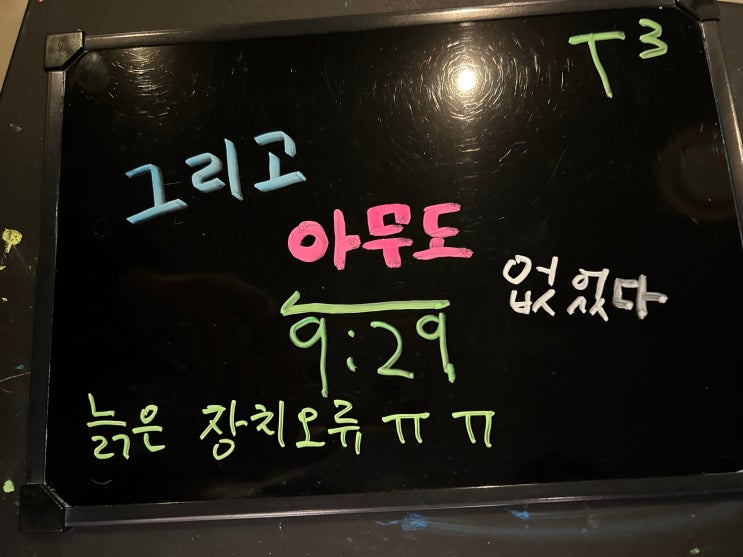 T³
그리고
아무도
없었다
9:29
늙은 장치오류 ㅠㅠ